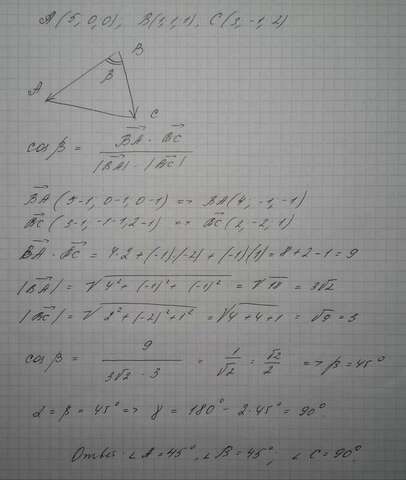 A(5, 0, 0), B(1, 1, 1), C(3, -1, 2)
B
β
A
C
cos β = BA · BC / |BA| · |BC|
BA (5-1, 0-1, 0-1) => BA(4, -1, -1)
BC (3-1, -1-1, 2-1) => BC (2, -2, 1)
BA · BC = 4·2 + (-1)(-2) + (-1)(1) = 8+2-1 = 9
|BA| = √4² + (-1)² + (-1)² = √18 = 3√2
|BC| = √2² + (-2)² + 1² = √4+4+1 = √9 = 3
cos β = 9 / 3√2 · 3 = 1/√2 = √2/2 => β = 45°
α = β = 45° => γ = 180° - 2·45° = 90°
Ответ: ∠A = 45°, ∠B = 45°, ∠C = 90°.